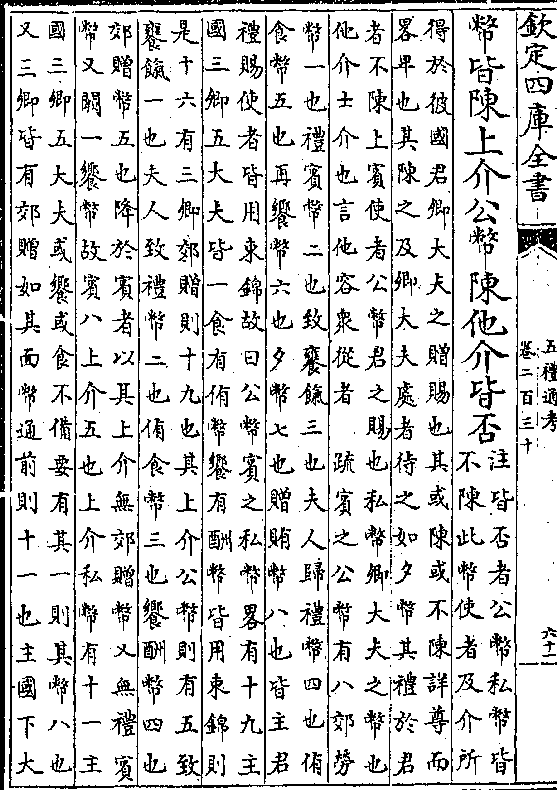 欽定四庫全書
五禮通考
卷二百三十
六十一
幣皆陳上介公幣陳他介皆否
注皆否者公幣私幣皆
不陳此幣使者及介所
得於彼國君卿大夫之贈賜也其或陳或不陳詳尊而
畧卑也其陳之及卿大夫處者待之如夕幣其禮於君
者不陳上賓使者公幣君之賜也私幣卿大夫之幣也
他介士介也言他容衆從者 疏賓之公幣有八郊勞
幣一也禮賓幣二也致饔餼三也夫人歸禮幣四也侑
食幣五也再饗幣六也夕幣七也贈賄幣八也皆主君
禮賜使者皆用束錦故曰公幣賓之私幣畧有十九主
國三卿五大夫皆一食有侑幣饗有酬幣皆用束錦則
是十六有三卿郊贈則十九也其上介公幣則有五致
饔餼一也夫人致禮幣二也侑食幣三也饗酬幣四也
郊贈幣五也降於賓者以其上介無郊贈幣又無禮賓
幣又闕一饗幣故賓八上介五也上介私幣有十一主
國三卿五大夫或饗或食不備要有其一則其幣八也
又三卿皆有郊贈如其面幣通前則十一也主國下大